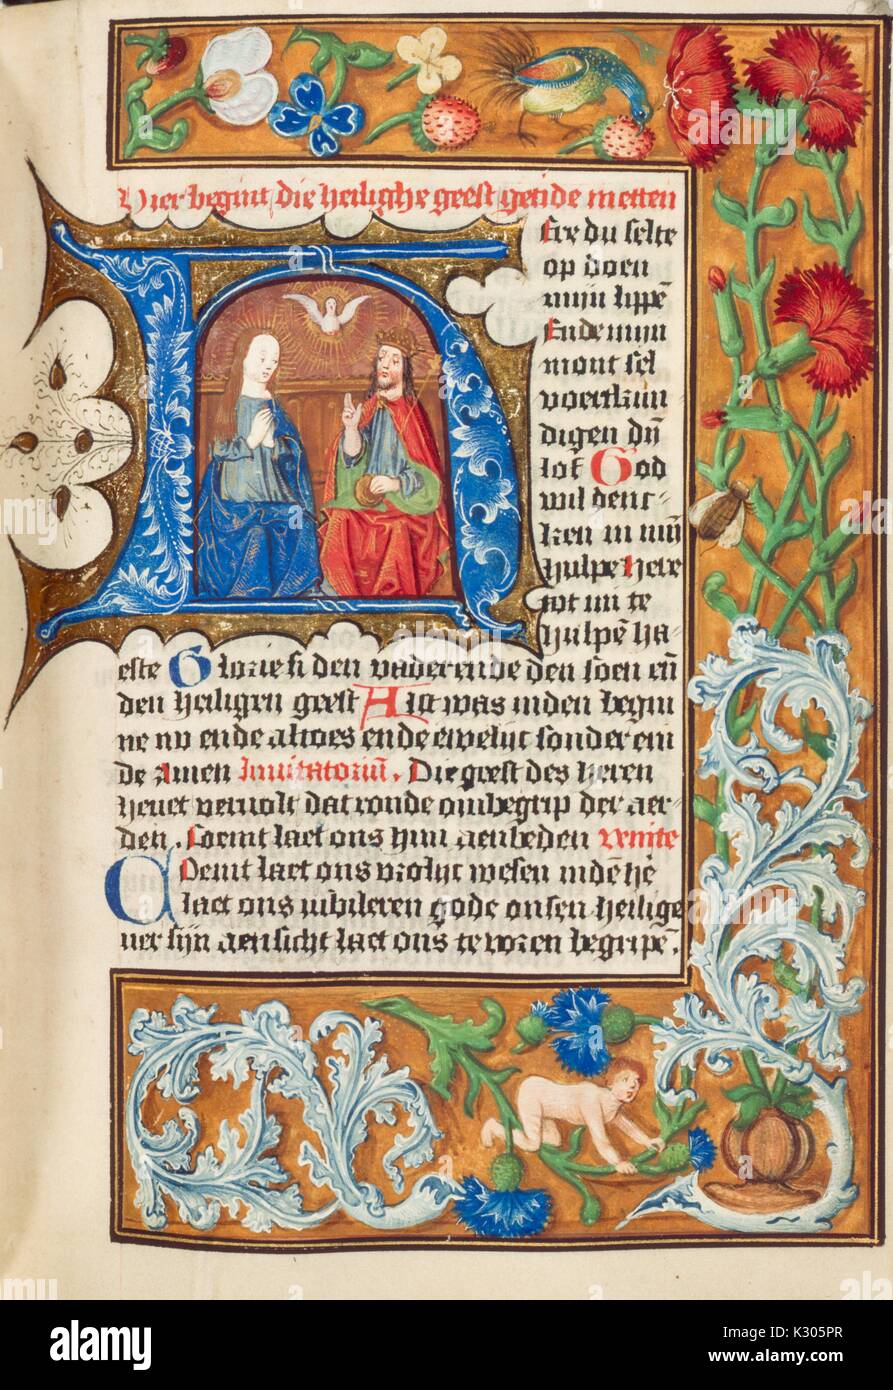 Hier begint die heilighe geest getide metten
Here du selte
op doen
mijn lippē
Ende mijn
mont sel
voertkun
digen dijn
lof God
wil denc-
ken in mijn
hulpe here
tot mi te
hulpē ha-
este Glorie si den vader ende den soen eñ
den heiligen geest Alst was inden begin
ne nv ende altoes ende ewelijc sonder ein
de Amen Invitatoriū. Die geest des heren
hevet vervolt dat ronde ombegrip der aer-
den. Coemt laet ons hem aenbeden Venite
Coemt laet ons vrolijc wesen indē hē
laet ons iubileren gode onsen heilige
uer sijn aensicht laet ons te voren begripē.
alamy
alamy
Image ID: K305PR
www.alamy.com